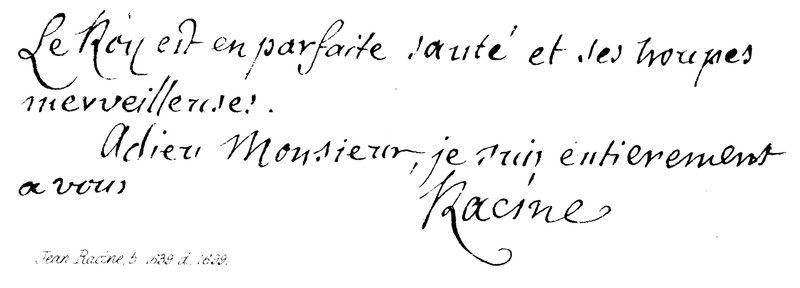 Le Roy est en parfaite santé et ses troupes
merveilleuses.
Adieu Monsieur, je suis entierement
a vous
Racine
Jean Racine, b. 1639 d. 1699.